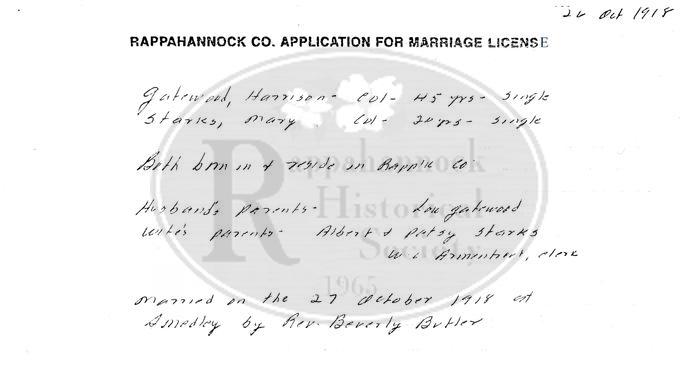 26 Oct 1918
RAPPAHANNOCK CO. APPLICATION FOR MARRIAGE LICENSE
Gatewood, Harrison - Col - 45 yrs - Single
Starks, Mary Col - 20 yrs - Single
Both born in & reside in Rapp'k Co.
Husband's parents - Lou Gatewood
Wife's parents - Albert & Patsy Starks
W C Armentrout, clerk
Married on the 27 October 1918 at
Smedley by Rev. Beverly Butler
Rappahannock
Historical
Society
1965